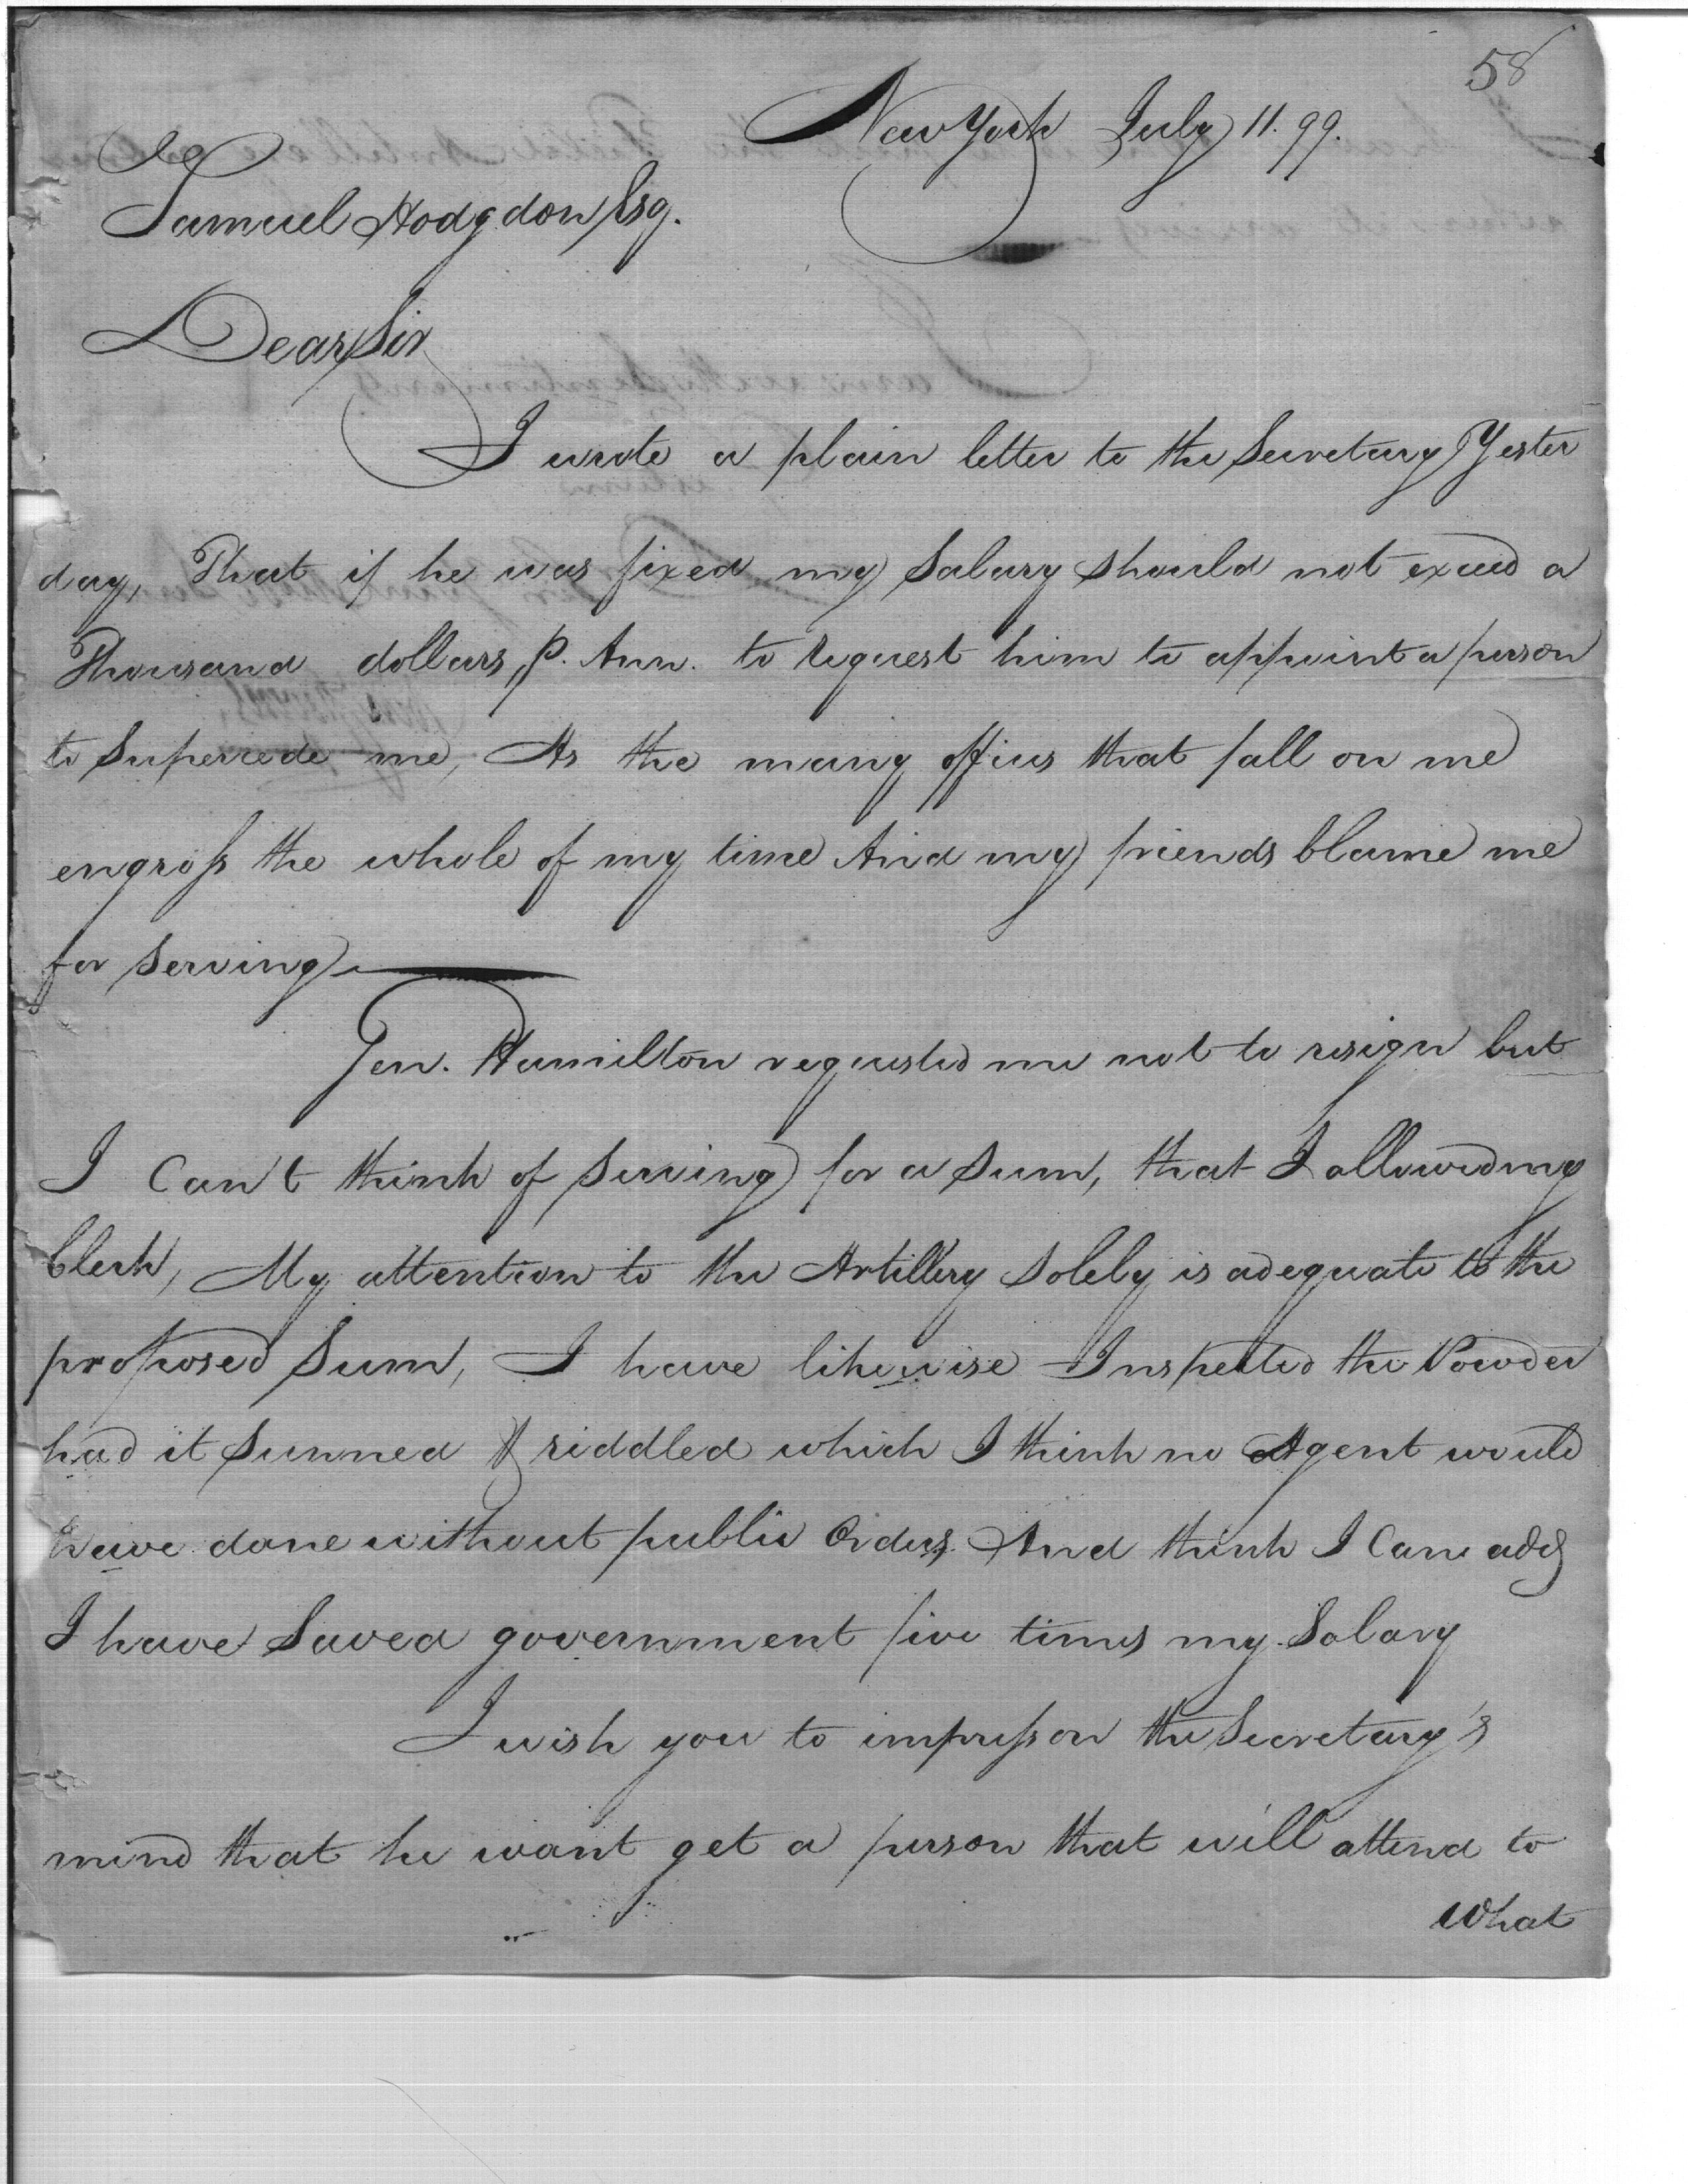 58
New York July 11. 99.
Samuel Hodgdon Esq.
Dear Sir
I wrote a plain letter to the Secretary Yester
day, That if he was fixed my Salary should not exceed a
Thousand dollars P. Ann. to request him to appoint a person
to Supercede me, As the many offices that fall on me
engross the whole of my time And my friends blame me
for Serving
Gen. Hamilton requested me not to resign but
I Can't think of Serving for a Sum, that I allowed my
Clerk, My attention to the Artillery Solely is adequate to the
proposed Sum, I have likewise Inspected the Powder
had it Sunned & riddled which I think no Agent would
have done without public Orders. And think I Can add
I have Saved government five times my Salary
I wish you to impress on the Secretary's
mind that he want get a person that will attend to
What